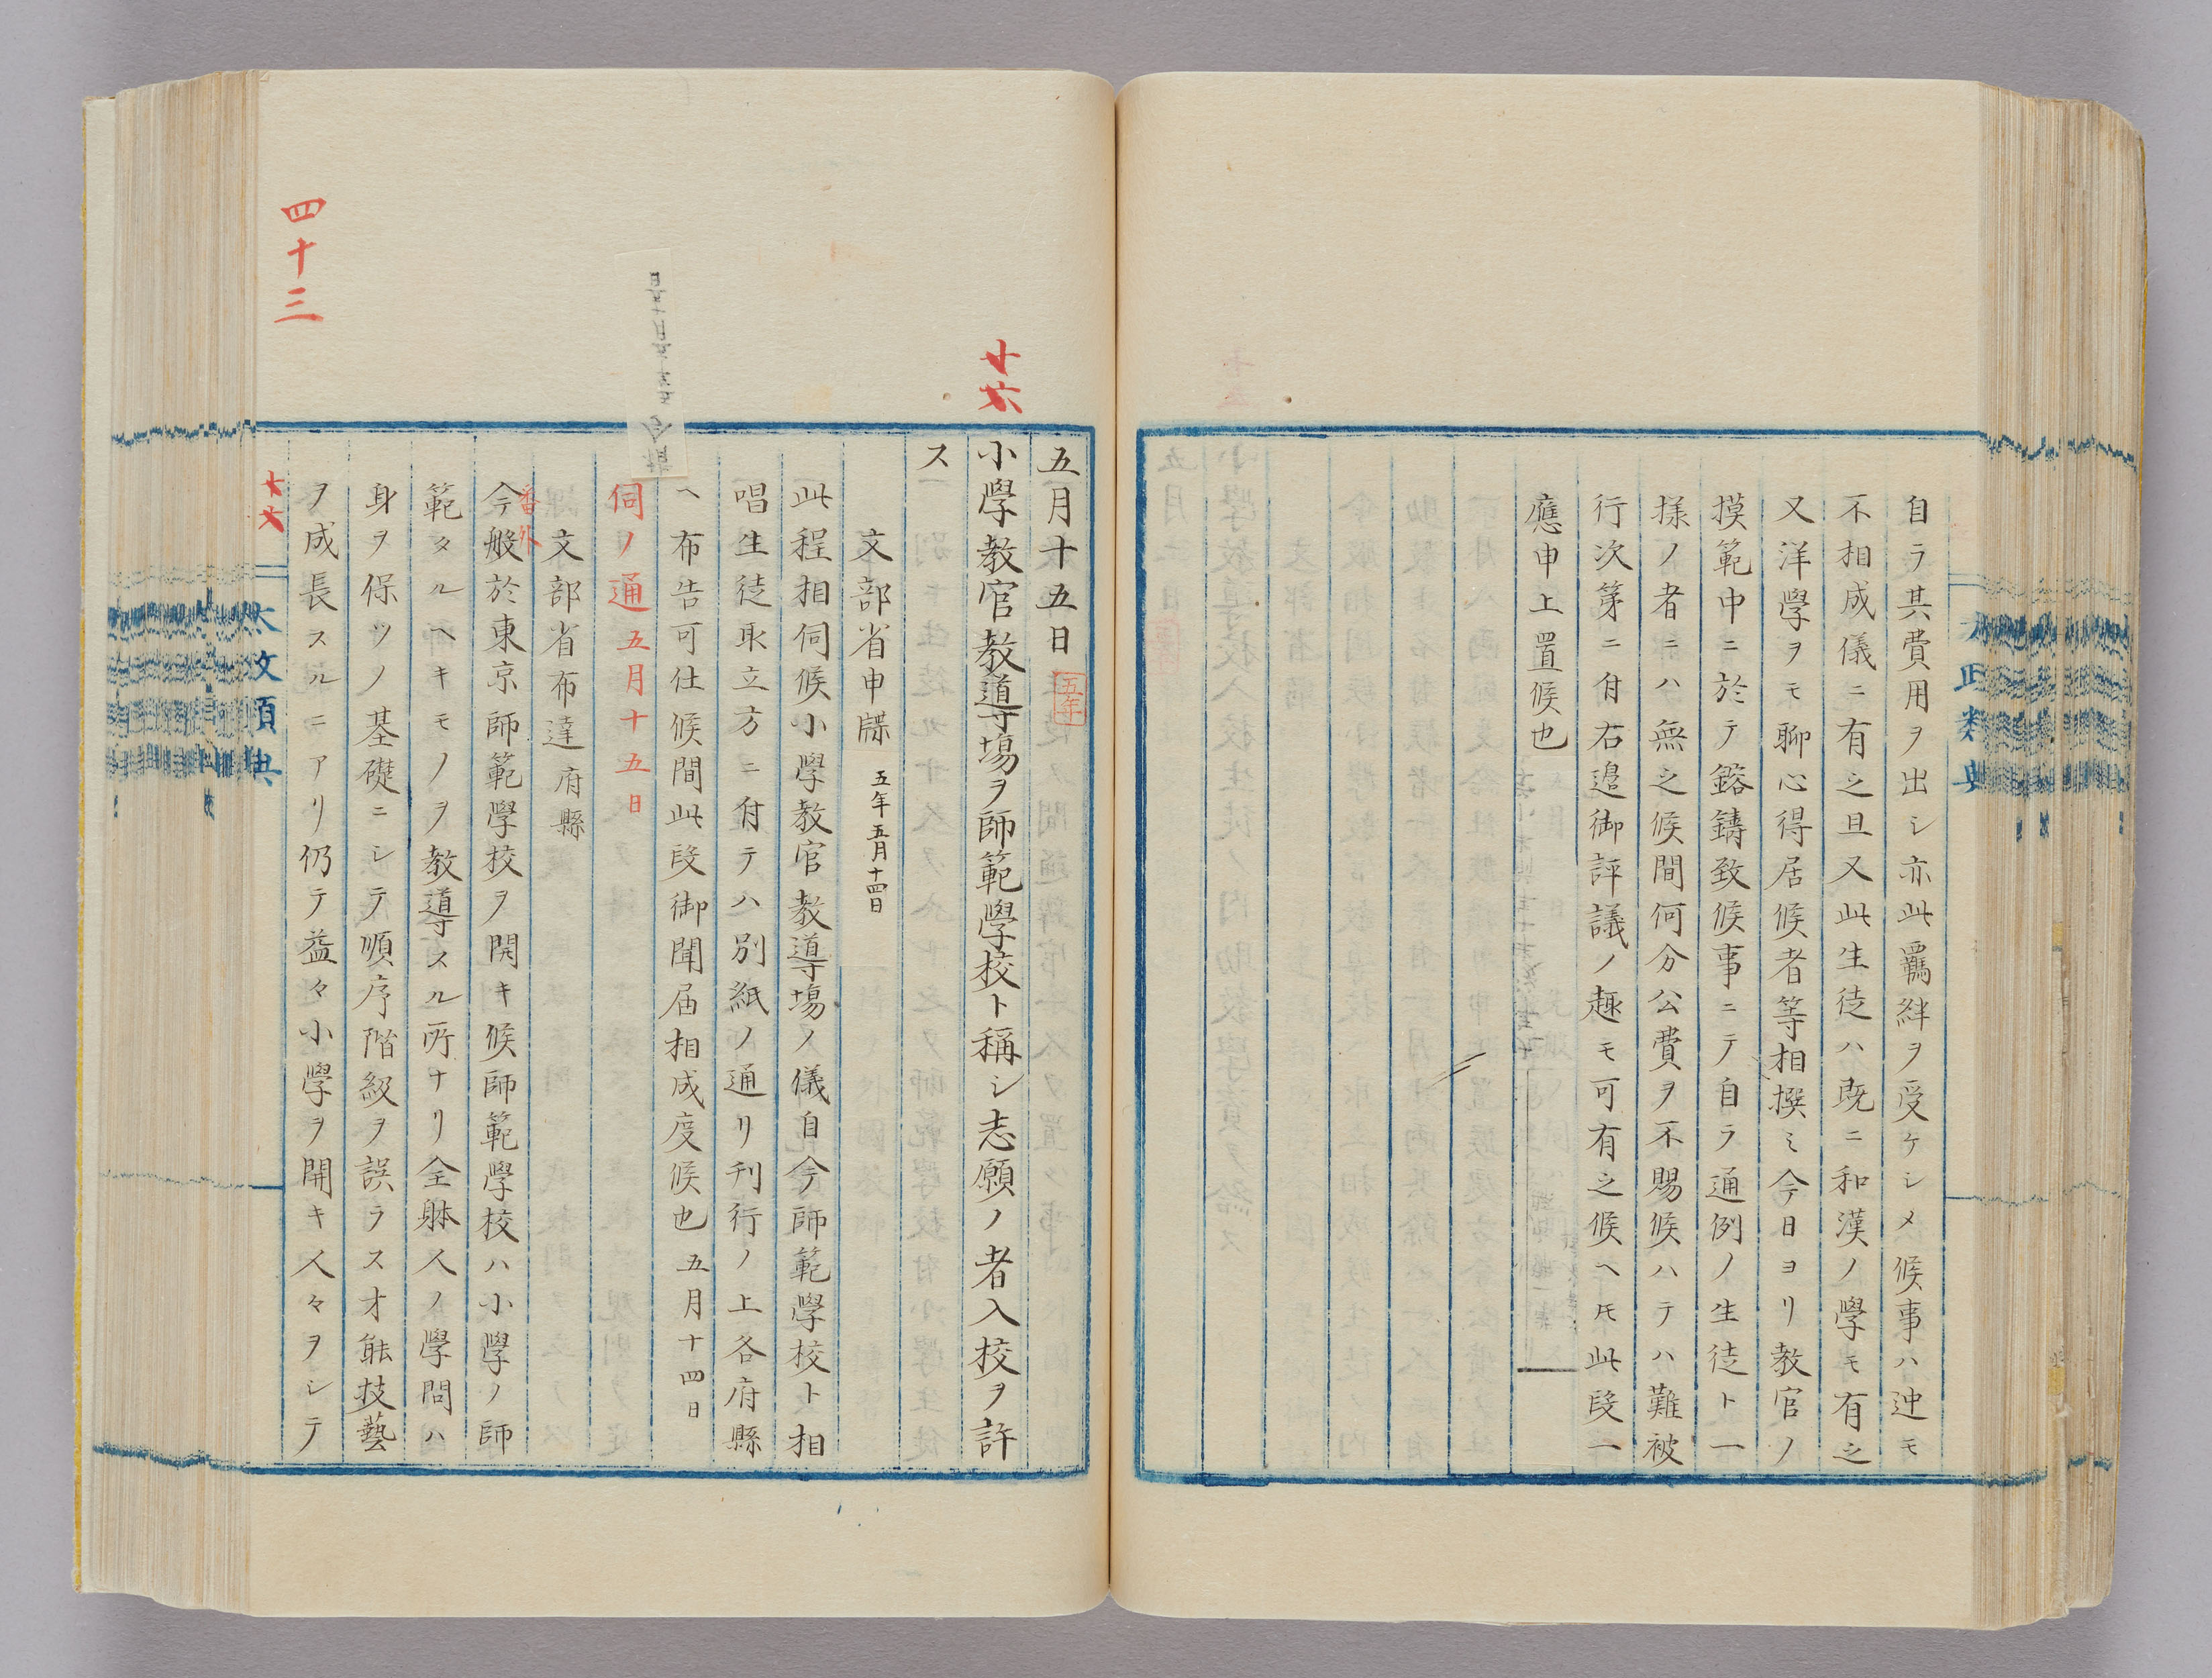 自ラ其費用ヲ出シ亦此覊絆ヲ受ケシメ候事ハ迚モ
不相成儀ニ有之且又此生徒ハ既ニ和漢ノ學モ有之
又洋學ヲモ聊心得居候者等相撰ミ今日ヨリ教官ノ
摸範中ニ於テ鎔鑄致候事ニテ自ラ通例ノ生徒ト一
様ノ者ニハ無之候間何分公費ヲ不賜候ハテハ難被
行次第ニ付右邉御評議ノ趣モ可有之候ヘ𪜈此段一
應申上置候也
廿六
五月十五日 五年
小學教官教導塲ヲ師範學校ト稱シ志願ノ者入校ヲ許
ス
文部省申牒 五年五月十四日
此程相伺候小學教官教導塲ノ儀自今師範學校ト相
唱生徒取立方ニ付テハ別紙ノ通リ刊行ノ上各府縣
ヘ布告可仕候間此段御聞届相成度候也 五月十四日
伺ノ通 五月十五日
文部省布達 府縣
番外
今般於東京師範學校ヲ開キ候師範學校ハ小學ノ師
範タルヘキモノヲ教導スル所ナリ全躰人ノ學問ハ
身ヲ保ツノ基礎ニシテ順序階級ヲ誤ラス才能技藝
ヲ成長スルニアリ仍テ益々小學ヲ開キ人々ヲシテ
四十三